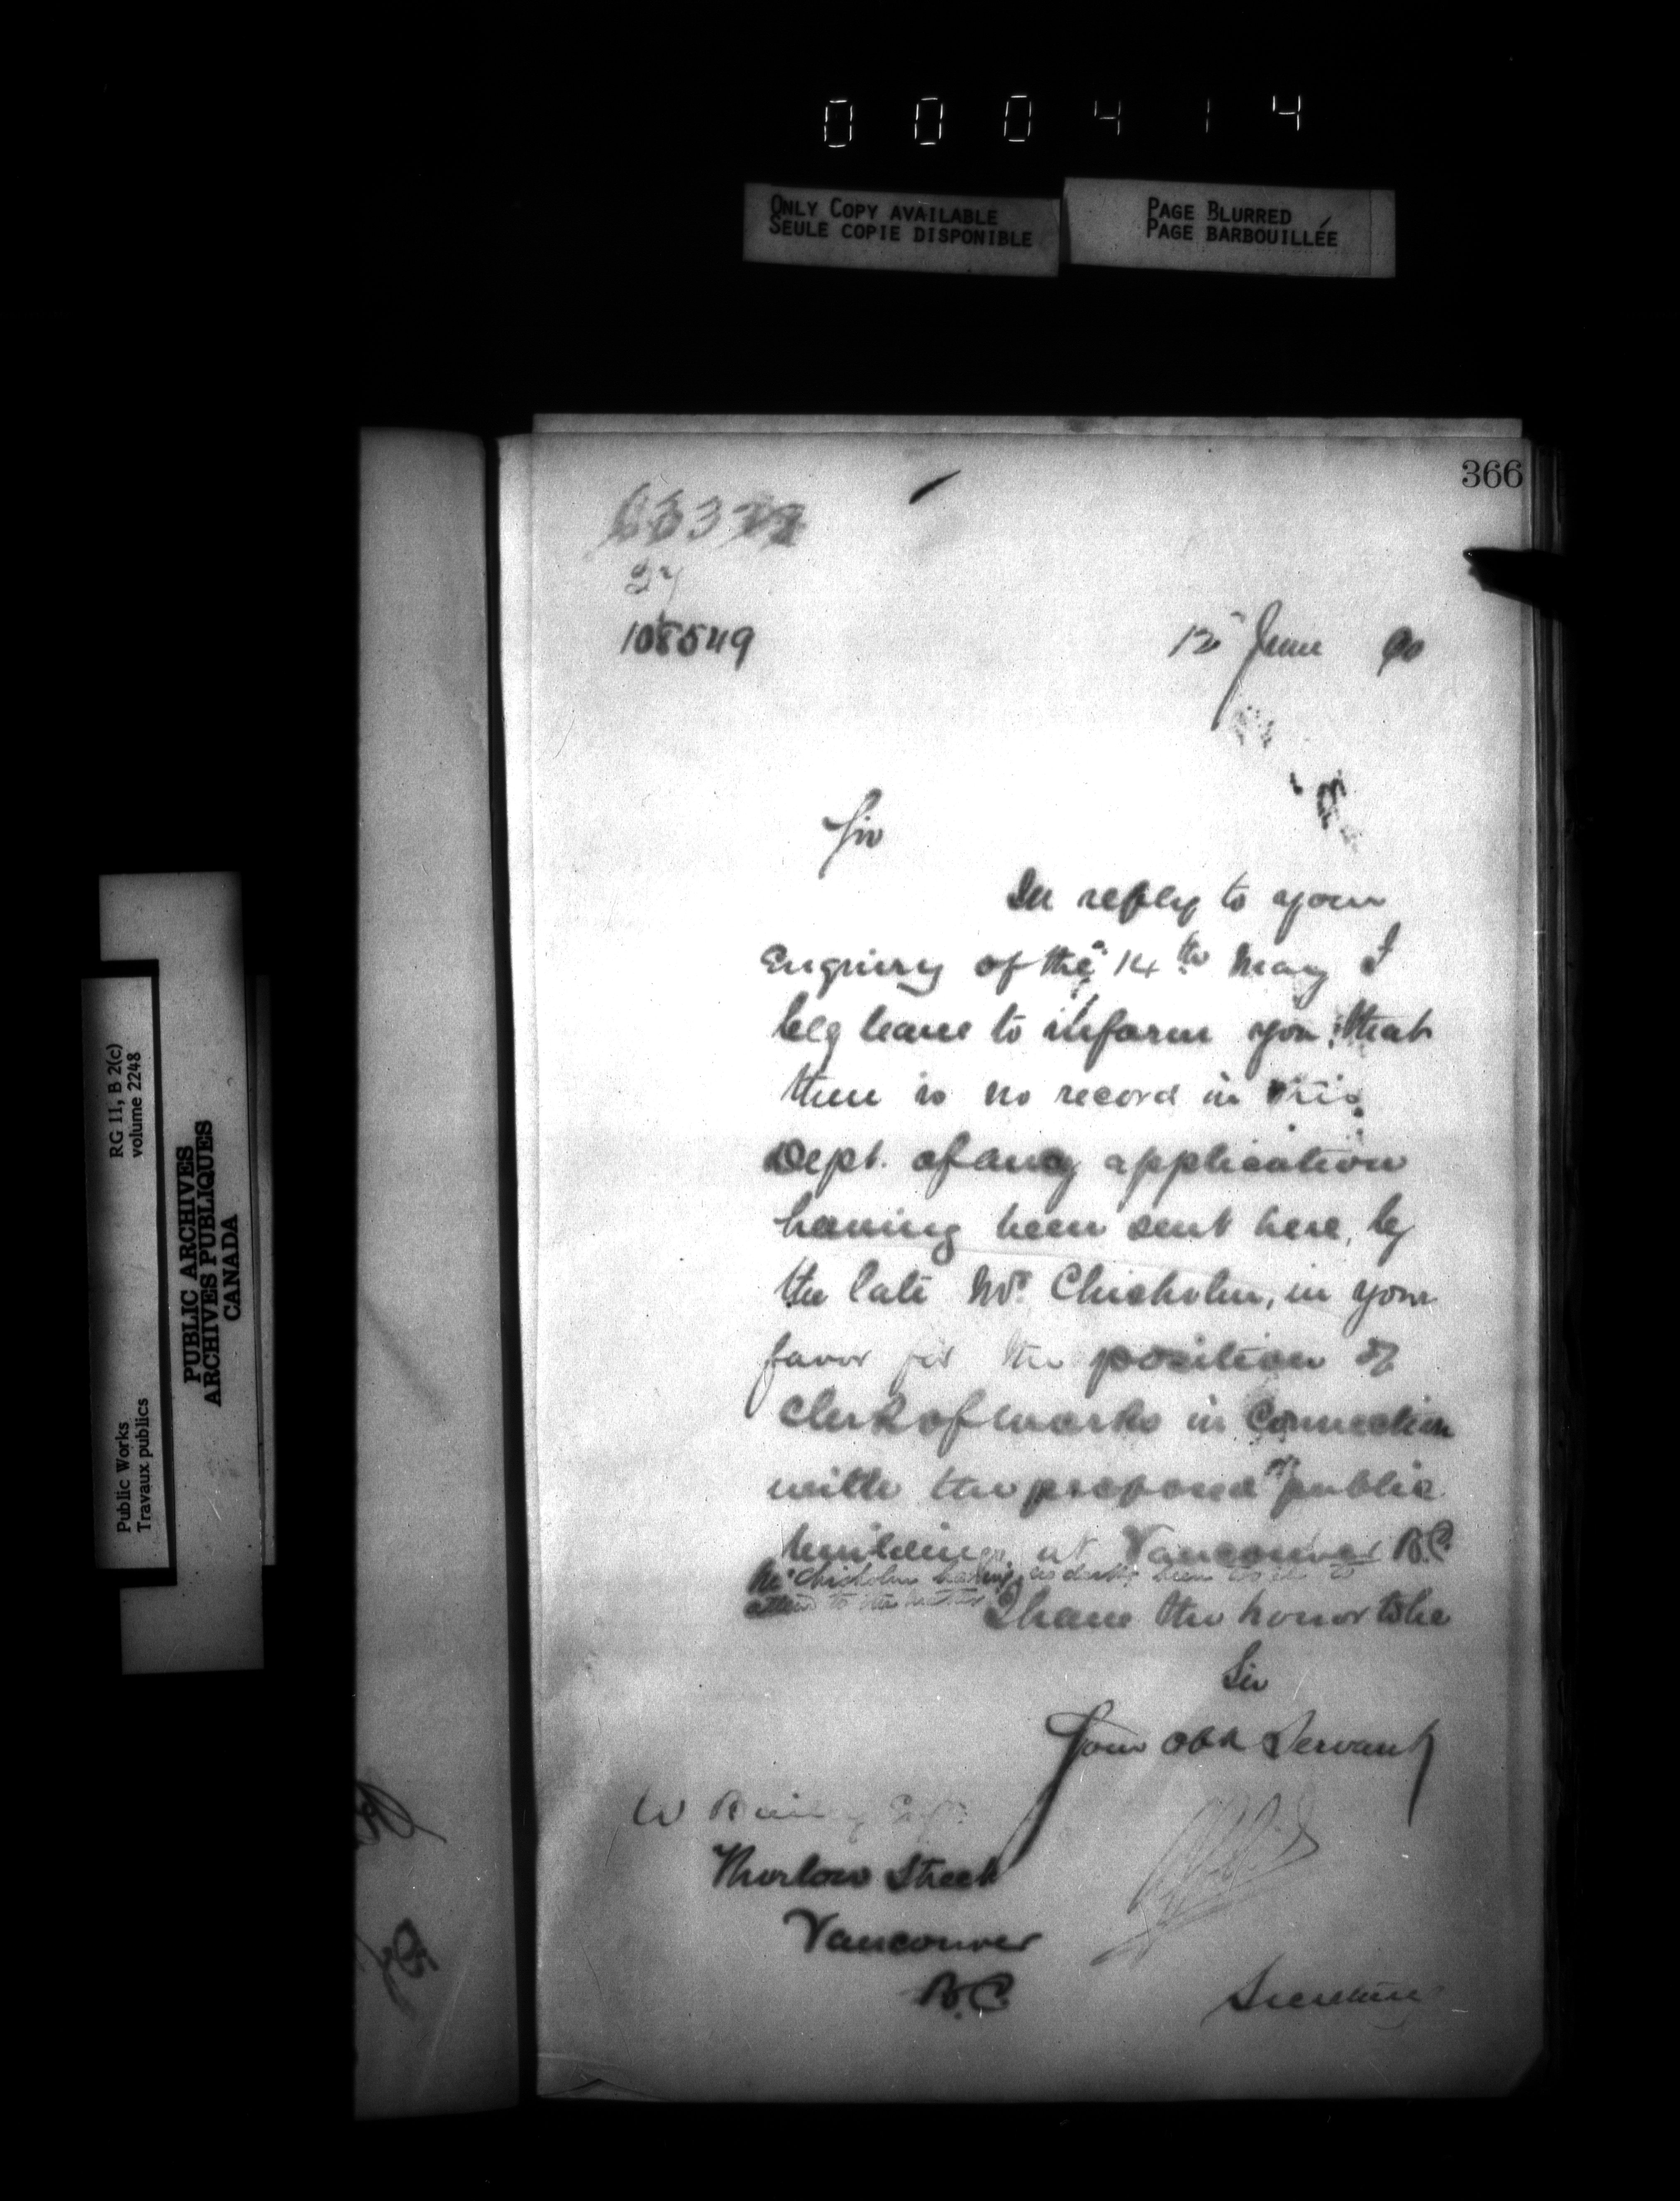 000414
ONLY COPY AVAILABLE
SEULE COPIE DISPONIBLE
PAGE BLURRED
PAGE BARBOUILLÉE
366
27
108549
12" June 90
Sir
In reply to your
Enquiry of the 14th May I
beg leave to inform you that
there is no record in this
Dept. of any application
having been sent here, by
the late Mr. Chisholm, in your
favor for the position of
Clerk of works in Connection
with the proposed public
building at Vancouver B.C.
Mr Chisholm having no doubt been to
attend to the matter
I have the honor to be
Sir
Your Obt Servant
W
Thurlow Street
Vancouver
B.C.
Secretary
Public Works
Travaux publics
RG 11, B 2(c)
volume 2248
PUBLIC ARCHIVES
ARCHIVES PUBLIQUES
CANADA